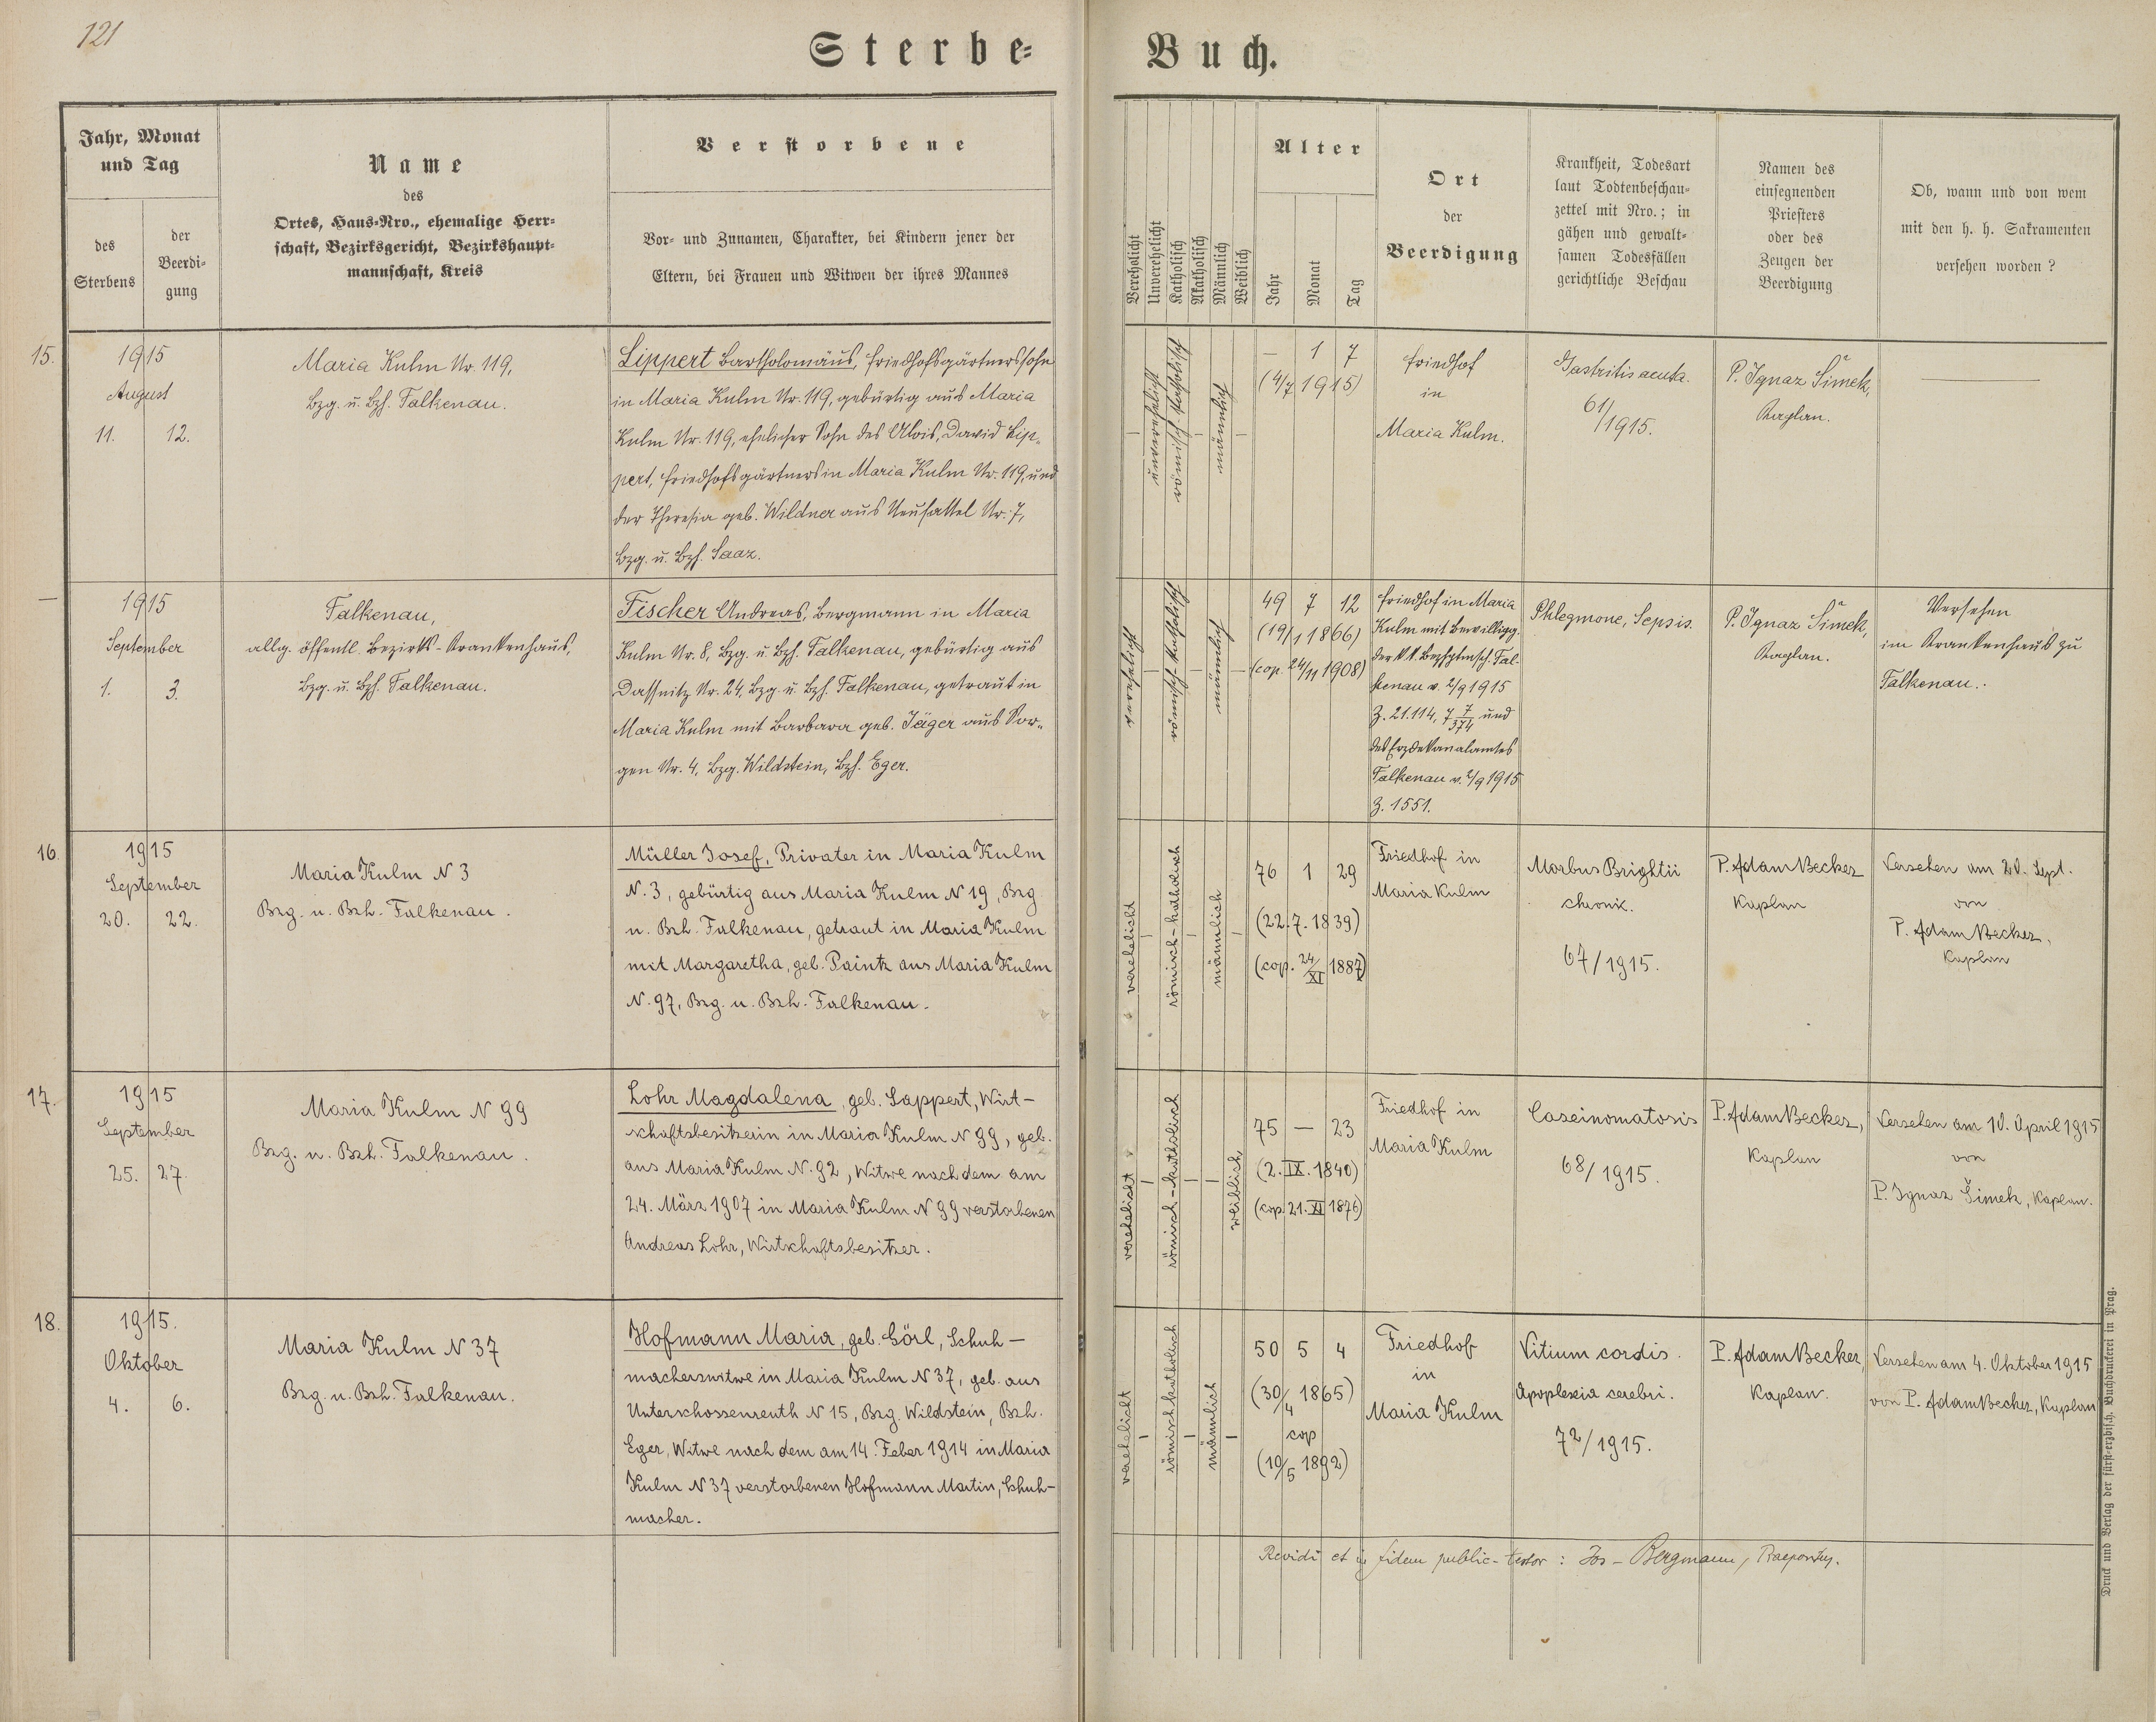 121
Sterbe-
Buch.
Jahr, Monat
und Tag
des
Sterbens
der
Beerdi-
gung
Name
des
Ortes, Haus-Nro., ehemalige Herr-
schaft, Bezirksgericht, Bezirkshaupt-
mannschaft, Kreis
Verstorbene
Vor- und Zunamen, Charakter, bei Kindern jener der
Eltern, bei Frauen und Witwen der ihres Mannes
Verehelicht
Unverehelicht
Katholisch
Akatholisch
Männlich
Weiblich
Alter
Jahr
Monat
Tag
Ort
der
Beerdigung
Krankheit, Todesart
laut Todtenbeschau-
zettel mit Nro.; in
gähen und gewalt-
samen Todesfällen
gerichtliche Beschau
Namen des
einsegnenden
Priesters
oder des
Zeugen der
Beerdigung
Ob, wann und von wem
mit den h. h. Sakramenten
versehen worden ?
15.
1915
August
11. 12.
Maria Kulm Nr. 119,
Bzg. u. Bzh. Falkenau.
Lippert Bartholomäus, Friedhofsgärtnerssohn
in Maria Kulm Nr. 119, gebürtig aus Maria
Kulm Nr. 119, ehelicher Sohn des Alois, David Lip-
pert, Friedhofsgärtners in Maria Kulm Nr. 119, und
der Theresia geb. Wildner aus Neusattel Nr. 7,
Bzg. u. Bzh. Saaz.
—
unverehelicht
römisch-katholisch
—
männlich
—
— 1 7
(4/7 1915)
Friedhof
in
Maria Kulm.
Gastritis acuta.
61/1915.
P. Ignaz Šimek,
Kaplan.
—
—
1915
September
1. 3.
Falkenau,
allg. öffentl. Bezirks-Krankenhaus,
Bzg. u. Bzh. Falkenau.
Fischer Andreas, Bergmann in Maria
Kulm Nr. 8, Bzg. u. Bzh. Falkenau, gebürtig aus
Dassnitz Nr. 24, Bzg. u. Bzh. Falkenau, getraut in
Maria Kulm mit Barbara geb. Jäger aus Sor-
gen Nr. 4, Bzg. Wildstein, Bzh. Eger.
verehelicht
—
römisch katholisch
—
männlich
—
49 7 12
(19/1 1866)
(cop. 24/11 1908)
Friedhof in Maria
Kulm mit Bewilligg.
der k.k. Bezhptmsch. Fal-
kenau v. 2/9 1915
Z. 21.114, 7 7/374 und
des Erzdekanalamtes
Falkenau v. 2/9 1915
Z. 1551.
Phlegmone, Sepsis.
P. Ignaz Šimek,
Kaplan.
Versehen
im Krankenhaus zu
Falkenau.
16.
1915
September
20. 22.
Maria Kulm N 3
Bzg. u. Bzh. Falkenau.
Müller Josef, Privater in Maria Kulm
N. 3, gebürtig aus Maria Kulm N 19, Bzg
u. Bzh. Falkenau, getraut in Maria Kulm
mit Margaretha, geb. Paintz aus Maria Kulm
N. 97, Bzg. u. Bzh. Falkenau.
verehelicht
—
römisch-katholisch
—
männlich
—
76 1 29
(22. 7. 1839)
(cop. 24/XI 1887)
Friedhof in
Maria Kulm
Morbus Brightii
chronic.
67/1915.
P. Adam Becker
Kaplan
Versehen am 20. Sept.
von
P. Adam Becker,
Kaplan
17.
1915
September
25. 27.
Maria Kulm N 99
Bzg. u. Bzh. Falkenau.
Lohr Magdalena, geb. Sappert, Wirt-
schaftsbesitzerin in Maria Kulm N 99, geb.
aus Maria Kulm N. 92, Witwe nach dem am
24. März 1907 in Maria Kulm N 99 verstorbenen
Andreas Lohr, Wirtschaftsbesitzer.
verehelicht
—
römisch-katholisch
—
—
weiblich
75 — 23
(2. IX. 1840)
(cop. 21. XI 1876)
Friedhof in
Maria Kulm
Carcinomatosis
68/1915.
P. Adam Becker,
Kaplan
Versehen am 10. April 1915
von
P. Ignaz Šimek, Kaplan.
18.
1915.
Oktober
4. 6.
Maria Kulm N 37
Bzg. u. Bzh. Falkenau.
Hofmann Maria, geb. Görl, Schuh-
macherswitwe in Maria Kulm N 37, geb. aus
Unterschossenreuth N 15, Bzg. Wildstein, Bzh.
Eger, Witwe nach dem am 14. Feber 1914 in Maria
Kulm N 37 verstorbenen Hofmann Martin, Schuh-
macher.
verehelicht
—
römisch katholisch
—
männlich
—
50 5 4
(30/4 1865)
cop
(10/5 1892)
Friedhof
in
Maria Kulm
Vitium cordis.
Apoplexia cerebri.
72/1915.
P. Adam Becker,
Kaplan.
Versehen am 4. Oktober 1915
von P. Adam Becker, Kaplan
Revidi et in fidem public- testor : Jos - Bergmann, Praepositus.
Druck und Verlag der fürst-erzbisch. Buchdruckerei in Prag.